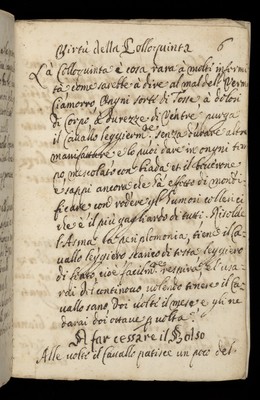 Virtù della Colloquinta 6
La Colloquinta è cosa rara à molti infermi
tà come sarette à dire al mal delli Vermi
Ciamorro, Ogni sorte di Tosse, à dolori
di Corpo, & durezze di Ventre purga
il Cavallo leggierm.te senza durare altra
manifatture e lo puoi dare in ongni tem
po mescolato con biada et il beverone
e sappi ancora che fa effetto di monti
ficare con rodere gl'humori collerici
che è il più gagliardo di tuti. Risolve
l'Asma la peniplomonia, tiene il Ca
vallo leggiero scarico di testa leggiero
di fiato, cioè facilm.te respira. E l'usa
rei di continouo volendo tenere il Ca
vallo sano, Doi volti il mese e gli ne
darai doi ottave p volta
A far cessare il Bolso
Alle volte il Cavallo patisce un poco del